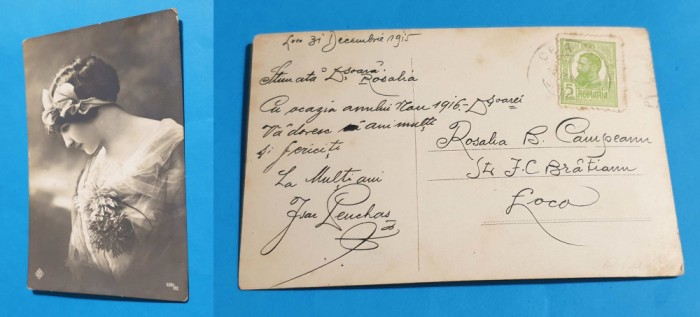 Loco 31 Decembrie 1915
Stimată D-șoară
Rosalia
Cu ocazia anului Nou 1916.-
Vă doresc ani mulți
și fericiți
La Mulți ani
Isac
D-șoarei
Rosalia B. Câmpeanu
Str. I. C. Brătianu
Loco
5
ROMANIA